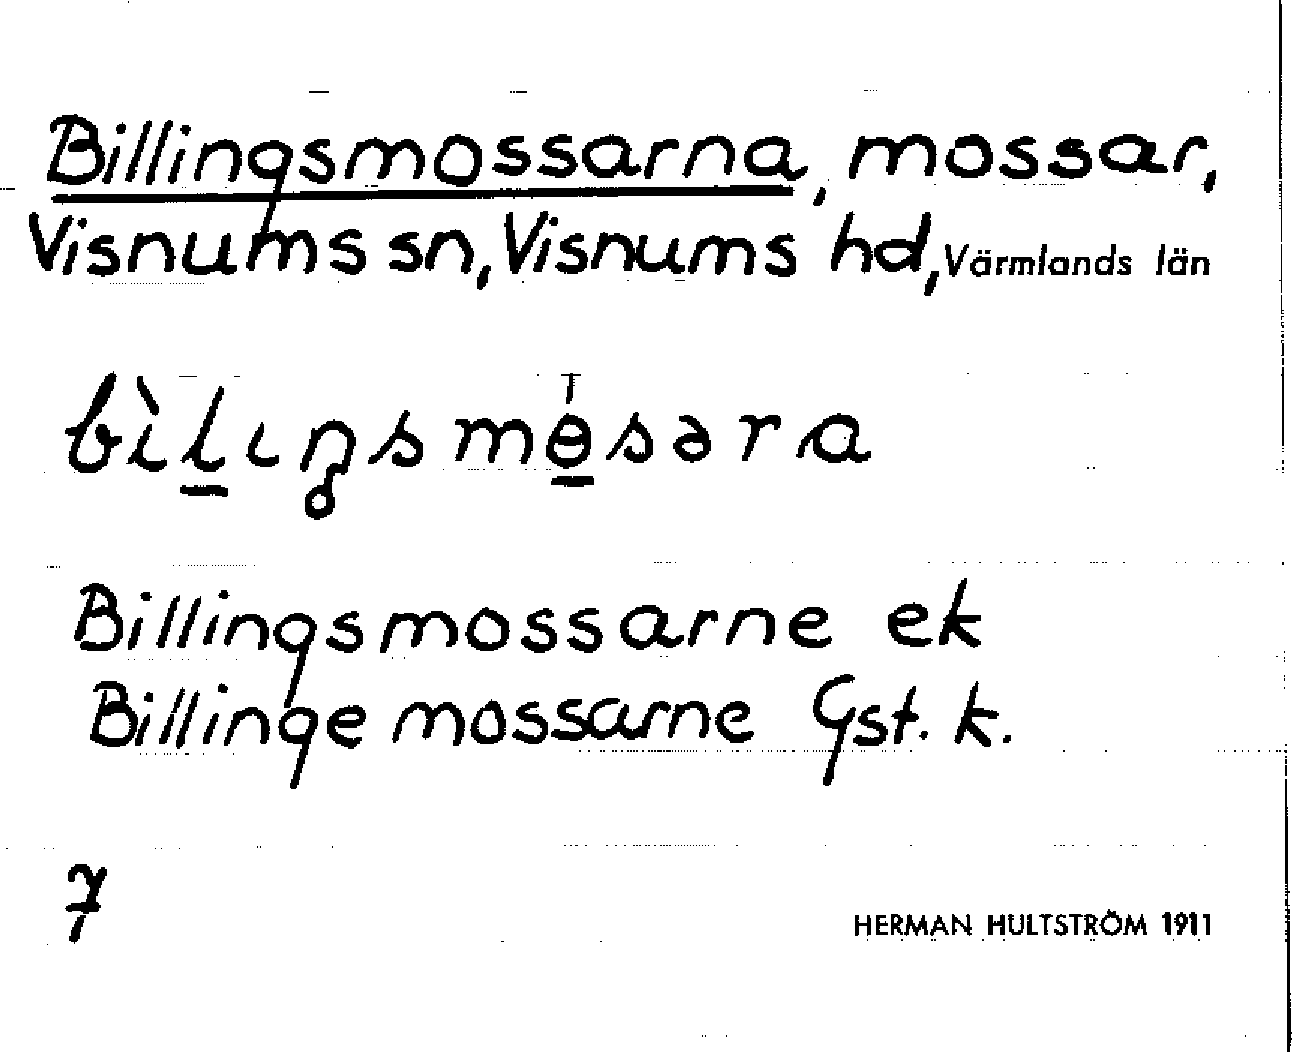 Billingsmossarna, mossar,
Visnums sn, Visnums hd, Värmlands län
bìlıŋsmɵsəra
Billingsmossarne ek
Billinge mossarne Gst. k.
7
HERMAN HULTSTRÖM 1911